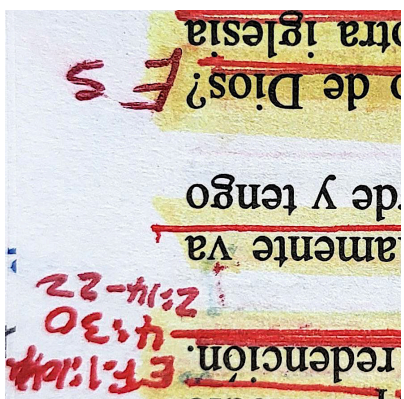 redención.
EF:1:14
4:30
2:14-22
amente va
de y tengo
de Dios?
otra iglesia